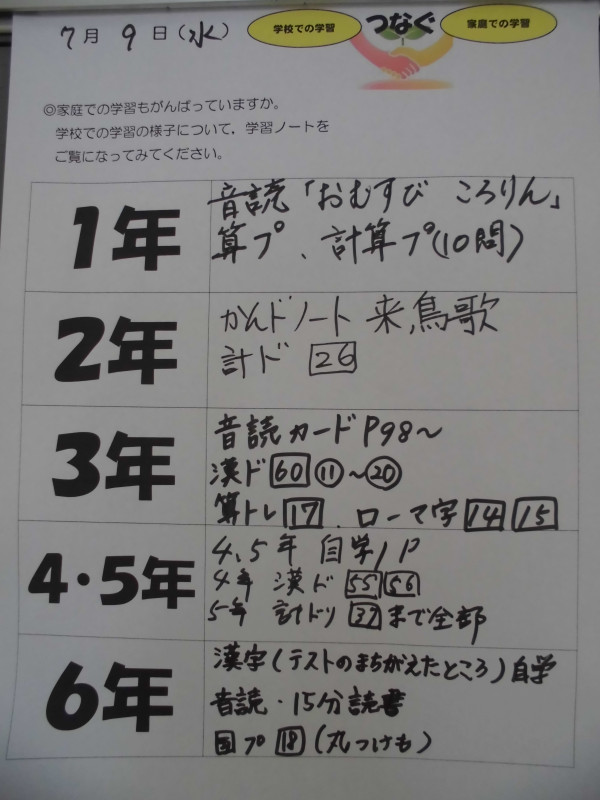 7月 9日(水)
学校での学習 つなぐ 家庭での学習
◎家庭での学習もがんばっていますか。
学校での学習の様子について，学習ノートを
ご覧になってみてください。
1年
音読「おむすび ころりん」
算プ、計算プ(10問)
2年
かんドノート 来,鳥歌
計ド 26
3年
音読カードP98～
漢ド60⑪～⑳
算トレ17、ローマ字14 15
4・5年
4、5年 自学1P
4年 漢ド 55 56
5年 計ドリ 37まで全部
6年
漢字(テストのまちがえたところ)自学
音読・15分読書
国プ18(丸つけも)